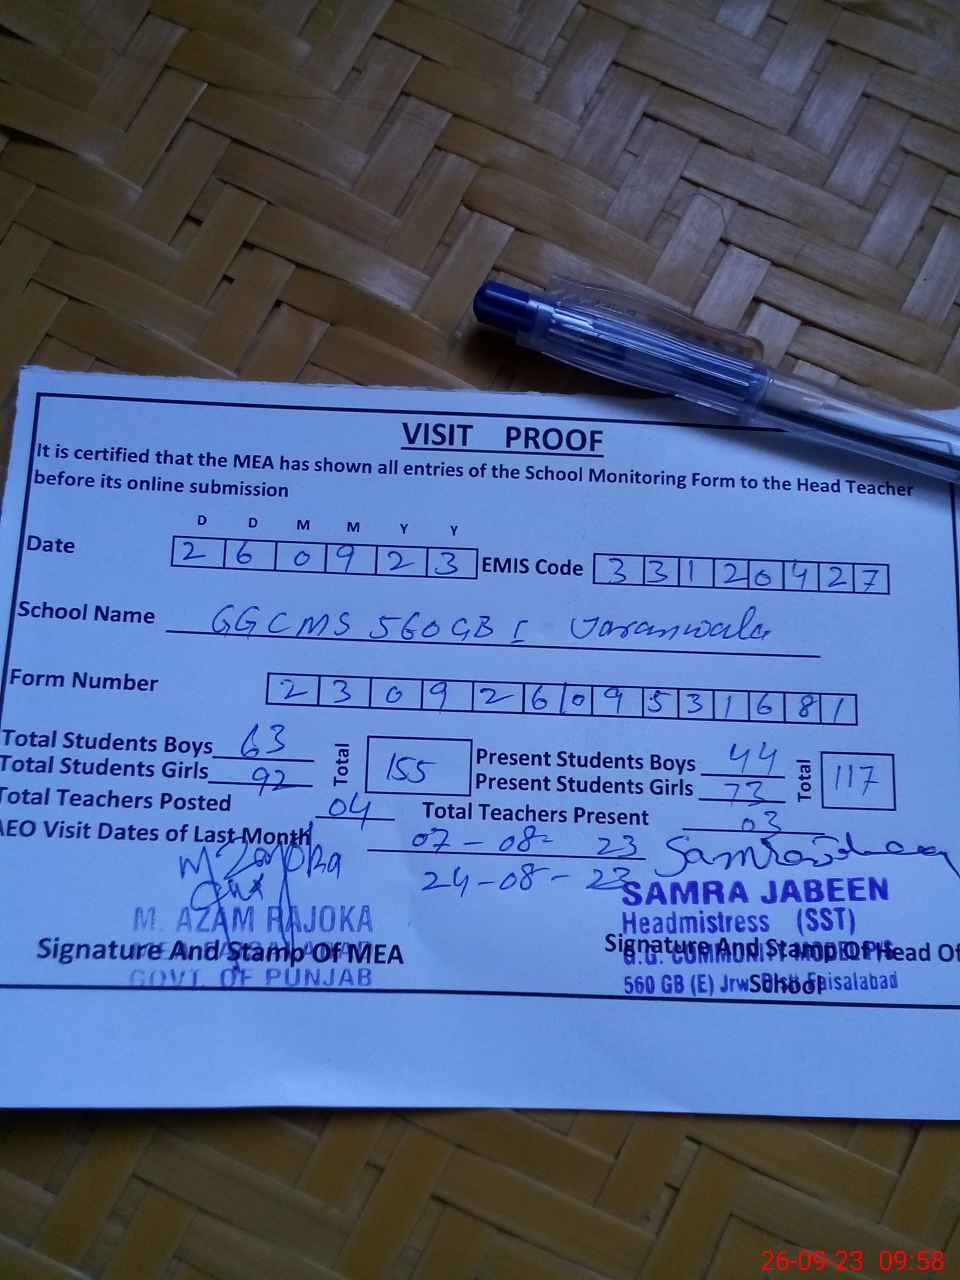 VISIT PROOF
It is certified that the MEA has shown all entries of the School Monitoring Form to the Head Teacher
before its online submission
D D M M Y Y
Date 2 6 0 9 2 3 EMIS Code 3 3 1 2 0 4 2 7
School Name GGCMS 560 GB
Form Number 2 3 0 9 2 6 0 9 5 3 1 6 8 1
Total Students Boys 63 Total 155 Present Students Boys 44 Total 117
Total Students Girls 92 Present Students Girls 73
Total Teachers Posted 04 Total Teachers Present 03
AEO Visit Dates of Last Month 07-08- 23
24-08-23
SAMRA JABEEN
M. AZAM RAJOKA Headmistress (SST)
Signature And Stamp Of MEA Signature And Stamp Of Head Of
G.G. COMMUNITY MODEL
GOVT. OF PUNJAB School
560 GB (E) Jrw Faisalabad
26-09-23 09:58